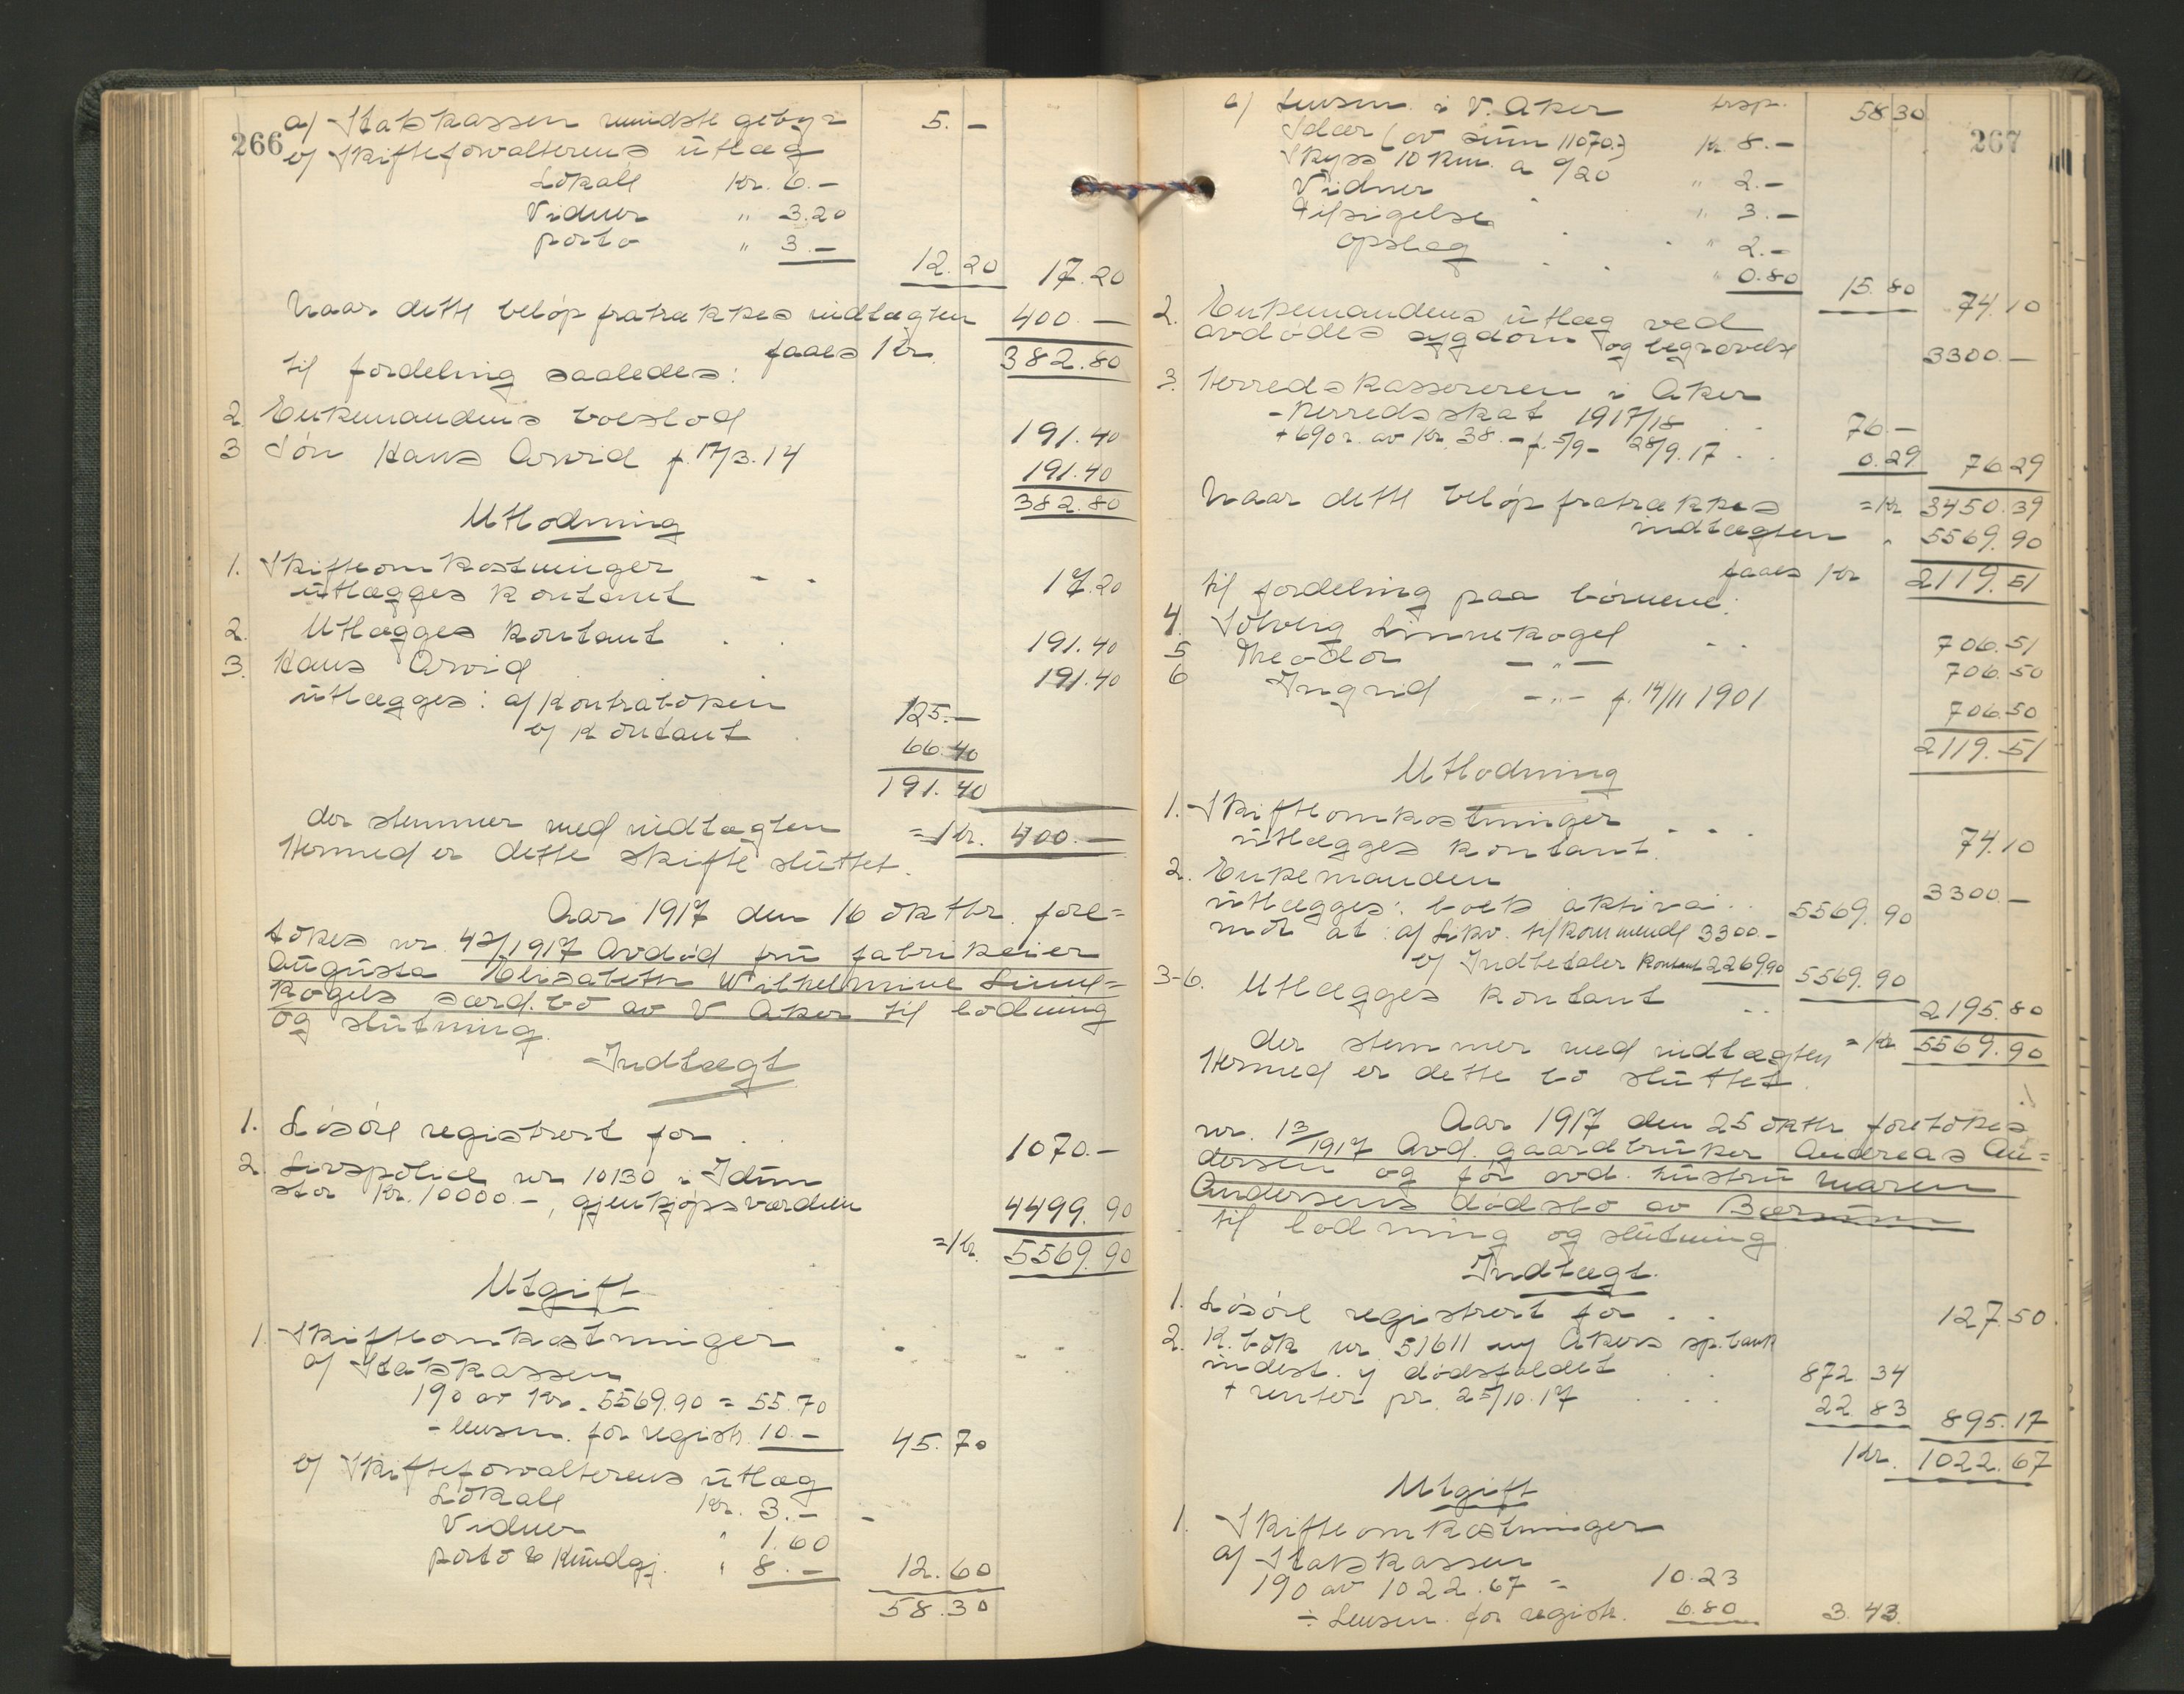 266
a/ Statskassen mindste gebyr 5.-
b/ Skifteforvalterens utlæg
Lokale Kr. 6.-
Vidner " 3.20
porto " 3.- 12.20 17.20
Naar dette beløp fratrækkes indtægten 400.-
faaes Kr. 382.80
til fordeling saaledes:
2 Enkemandens boeslod 191.40
3 Søn Hans Arvid f. 17/3.14 191.40
382.80
Utlodning
1. Skifteomkostninger
utlægges kontant 17.20
2. Utlægges kontant 191.40
3. Hans Arvid 191.40
utlægges: a/ Kontraboken 125.-
b/ Kontant 66.40
191.40
der stemmer med indtægten =Kr. 400.-
Hermed er dette skifte sluttet.
Aar 1917 den 16 oktbr. fore=
tokes nr. 42/1917 Avdød fru fabrikeier
Augusta Elisabeth Wilhelmine Linne=
kogels særd.bo av V Aker til lodning
og slutning.
Indtægt
1. Løsøre registrert for 1070.-
2. Livspolice nr 10130 i Idun
stor Kr. 10000.-, gjenkjøpsværdien 4499.90
=Kr. 5569.90
Utgift
1. Skifteomkostninger
a/ Statskassen
1% av Kr. 5569.90 = 55.70
- lensm. for registr. 10.- 45.70
b/ Skifteforvalterens utlæg
Lokale Kr. 3.-
Vidner " 1.60
porto & Kundgj. " 8.- 12.60
58.30
267
trsp. 58.30
c/ Lensm. i V. Aker
Idær (av sum 1070.-) Kr. 8.-
Skyss 10 km. a 0/20 " 2.-
Vidner " 3.-
Tilsigelse " 2.-
Opslag " 0.80 15.80 74.10
2. Enkemandens utlæg ved
avdødes sygdom og begravelse 3300.-
3. Herredskassereren i Aker
- herredsskat 1917/18 76.-
+ 6% r. av Kr. 38.- f. 5/9 - 28/9.17 0.29 76.29
=Kr 3450.39
Naar dette beløp fratrækkes
indtægten " 5569.90
faaes Kr 2119.51
til fordeling paa børnene:
4. Solveig Linnekogel 706.51
5 Theodor -"- 706.50
6 Ingrid -"- f. 14/11 1901 706.50
2119.51
Utlodning
1. Skifteomkostninger
utlægges kontant 74.10
2. Enkemanden 3300.-
utlægges: boets aktiva 5569.90
mot at: a/ Likv. tilkommende 3300.-
b/ Indbetaler kontant 2269.90 5569.90
3-6. Utlægges kontant 2195.80
der stemmer med indtægten =Kr 5569.90
Hermed er dette bo sluttet.
Aar 1917 den 25 oktbr. foretokes
nr. 13/1917 Avd. gaardbruker Andreas An=
dersen og før avd. hustru Maren
Andersens dødsbo av Bærum
til lodning og slutning
Indtægt.
1. Løsøre registrert for 127.50
2. K.bok nr 51611 m/ Akers sp.bank
indest. v/ dødsfaldet 872.34
+ renter pr. 25/10.17 22.83 895.17
Kr. 1022.67
Utgift
1. Skifteomkostninger
a/ Statskassen
1% av 1022.67 = 10.23
÷ Lensm. for registr. 6.80 3.43